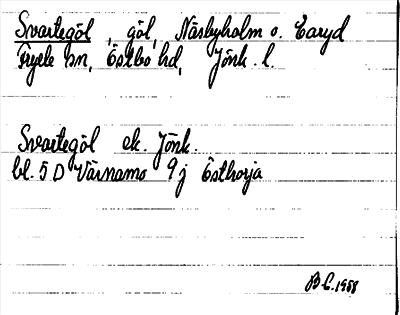 Svartegöl, göl, Näsbyholm o. Taryd
Fryele sn, Östbo hd, Jönk. l.
Svartegöl ek. Jönk.
bl. 5 D Värnamo 9 j Östhorja
B C. 1958